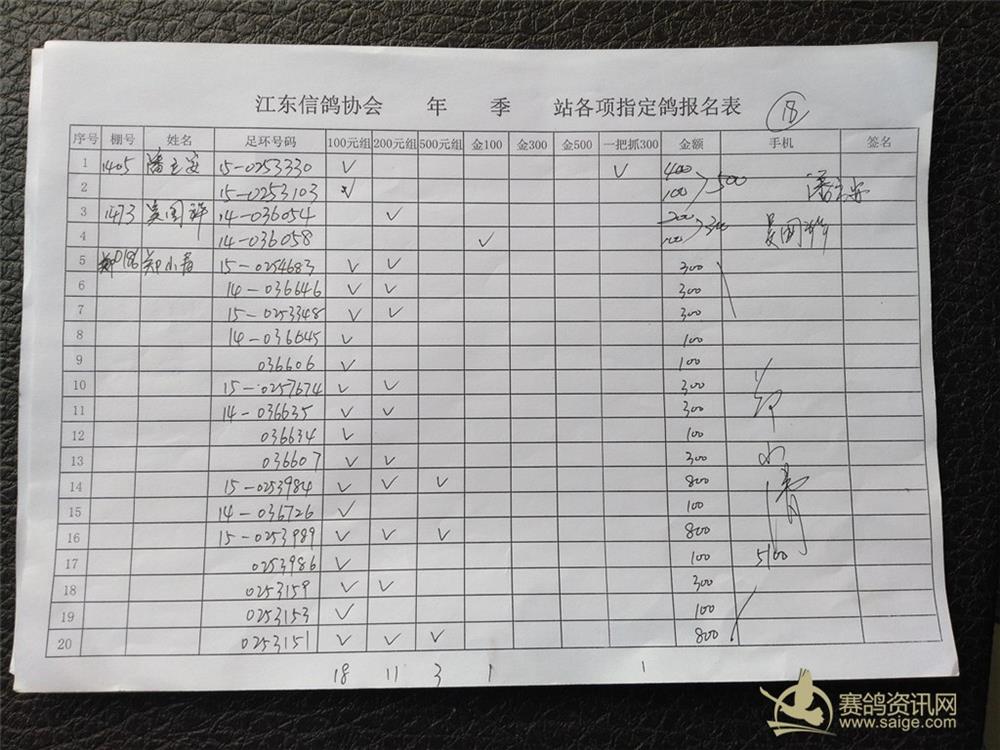 江东信鸽协会 年 季 站各项指定鸽报名表 18
序号 棚号 姓名 足环号码 100元组 200元组 500元组 金100 金300 金500 一把抓300 金额 手机 签名
1 1405 15-0253330 ✓ ✓ 400
2 15-0253103 ✓ 100 500
3 1473 吴国祥 14-036054 ✓ 200
4 14-036058 ✓ 100 300 吴国祥
5 郑小青 15-0254683 ✓ ✓ 300
6 14-036646 ✓ ✓ 300
7 15-0253348 ✓ ✓ 300
8 14-036645 ✓ 100
9 036606 ✓ 100
10 15-0257674 ✓ ✓ 300
11 14-036635 ✓ ✓ 300
12 036634 ✓ 100
13 036607 ✓ ✓ 300
14 15-0253984 ✓ ✓ ✓ 800
15 14-036726 ✓ 100
16 15-0253989 ✓ ✓ ✓ 800
17 0253986 ✓ 100 5100
18 0253159 ✓ ✓ 300
19 0253153 ✓ 100
20 0253151 ✓ ✓ ✓ 800
18 11 3 1 1
赛鸽资讯网
www.saige.com